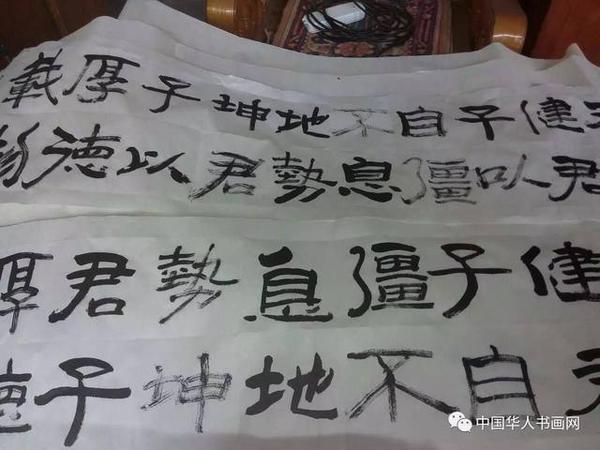 健君
子以
自彊
不息
地勢
坤君
子以
厚德
載物
健
子自
彊不
息地
勢坤
君子
厚德
中国华人书画网